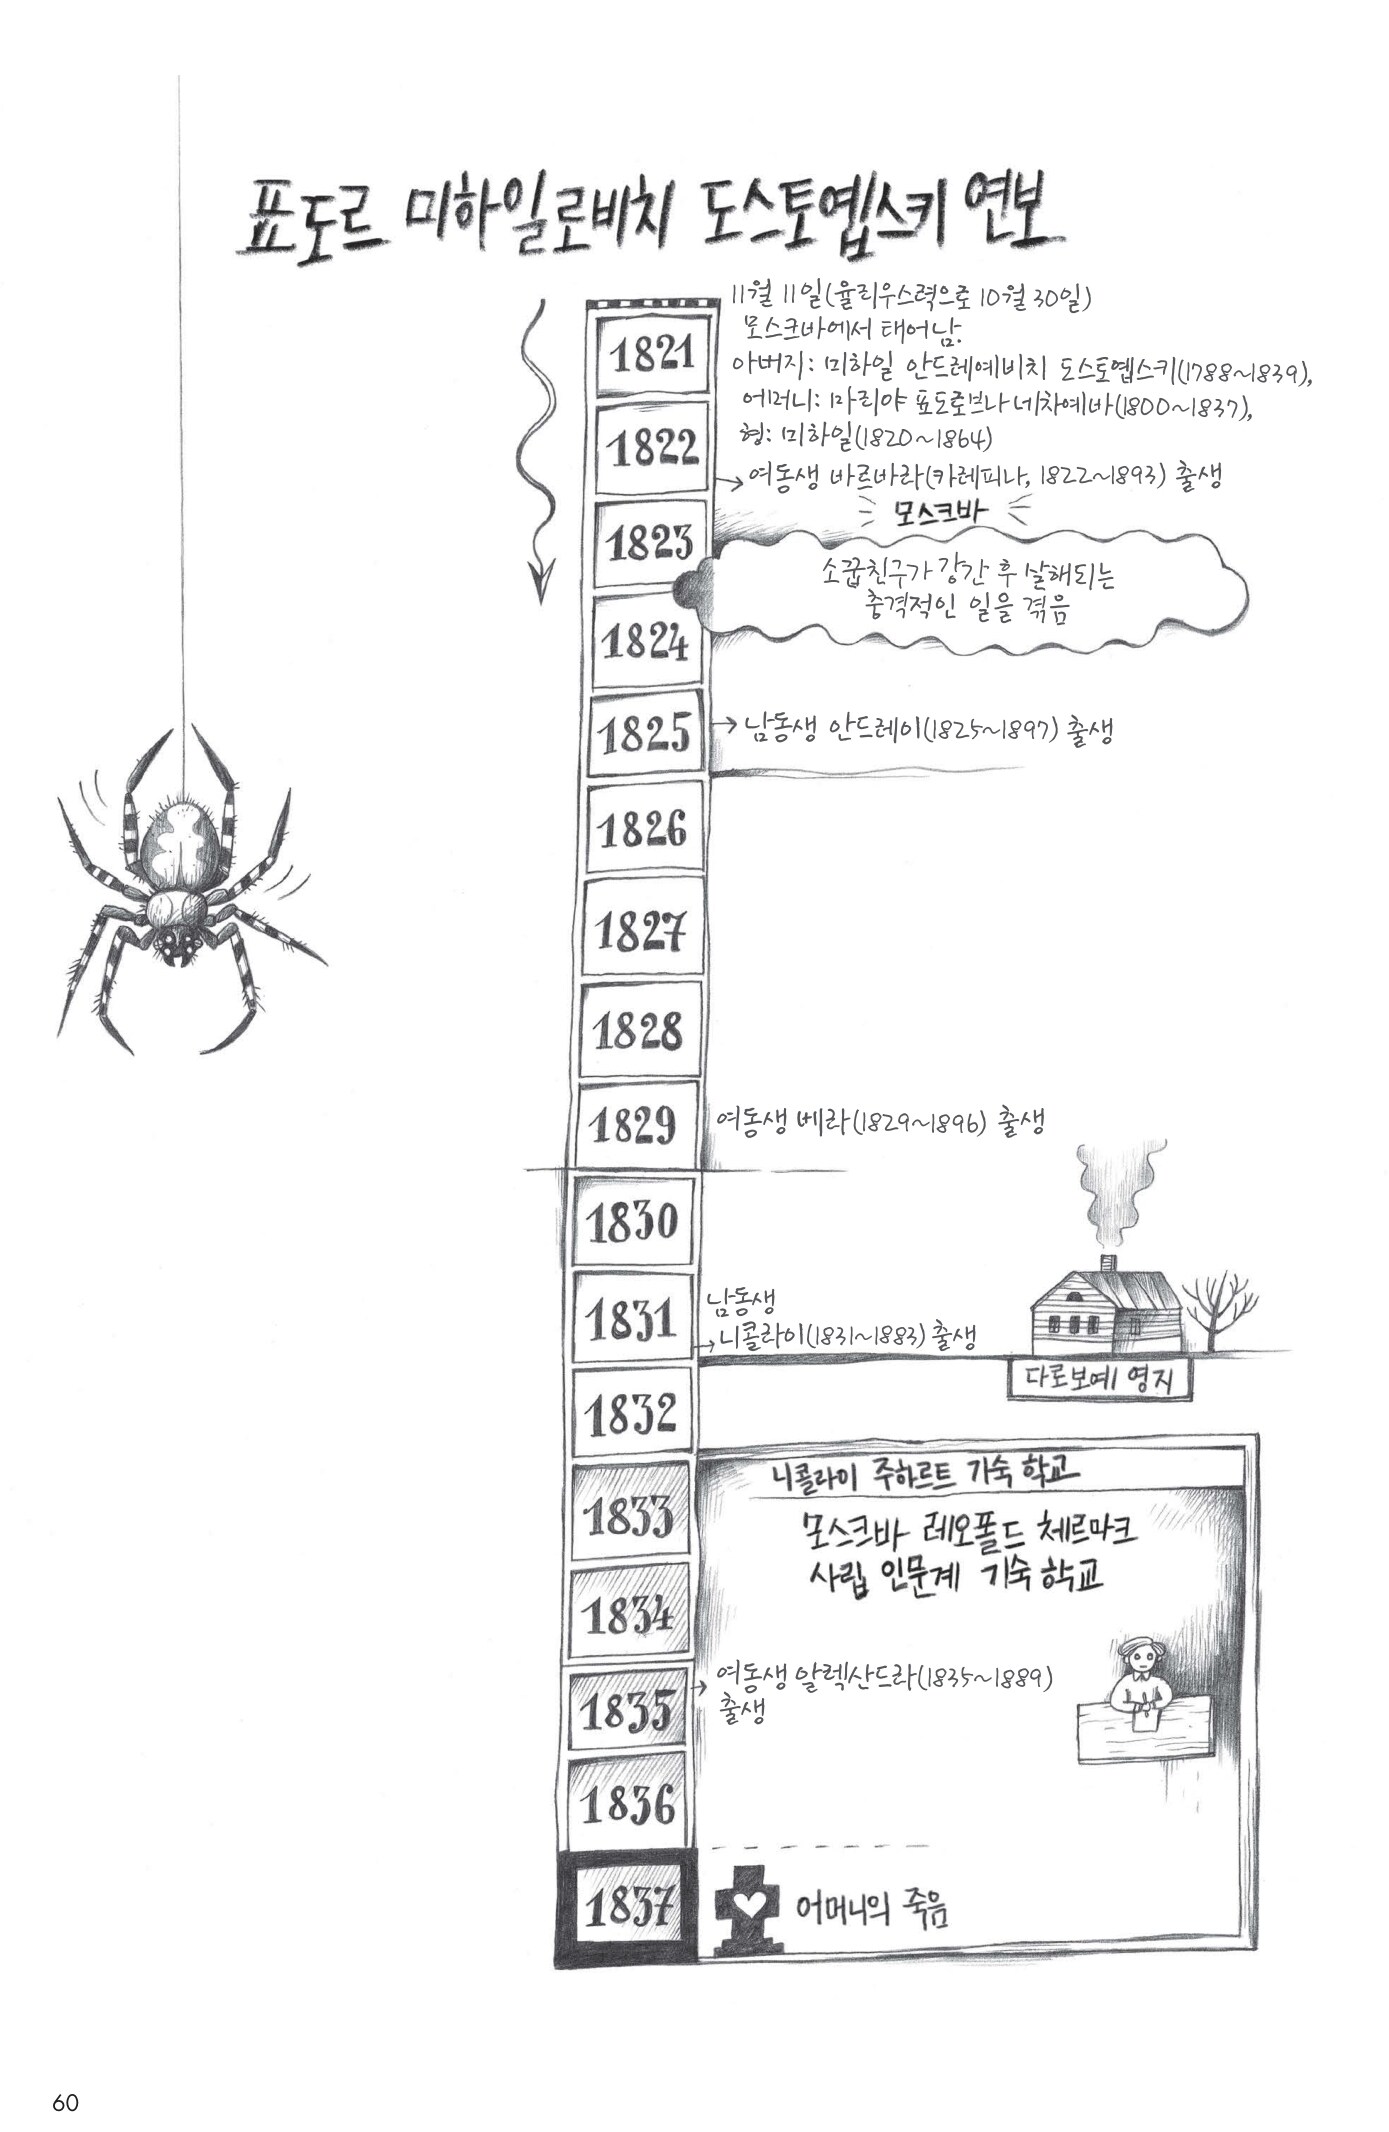 표도르 미하일로비치 도스토옙스키 연보
1821
11월 11일(율리우스력으로 10월 30일)
모스크바에서 태어남.
아버지: 미하일 안드레예비치 도스토옙스키(1788~1839),
어머니: 마리야 표도로브나 네차예바(1800~1837),
형: 미하일(1820~1864)
1822
여동생 바르바라(카레피나, 1822~1893) 출생
모스크바
1823
소꿉친구가 강간 후 살해되는
충격적인 일을 겪음
1824
1825
남동생 안드레이(1825~1897) 출생
1826
1827
1828
1829
여동생 베라(1829~1896) 출생
1830
1831
남동생
니콜라이(1831~1883) 출생
다로보예 영지
1832
니콜라이 주하르트 기숙 학교
1833
모스크바 레오폴드 체르마크
사립 인문계 기숙 학교
1834
1835
여동생 알렉산드라(1835~1889)
출생
1836
1837
어머니의 죽음
60